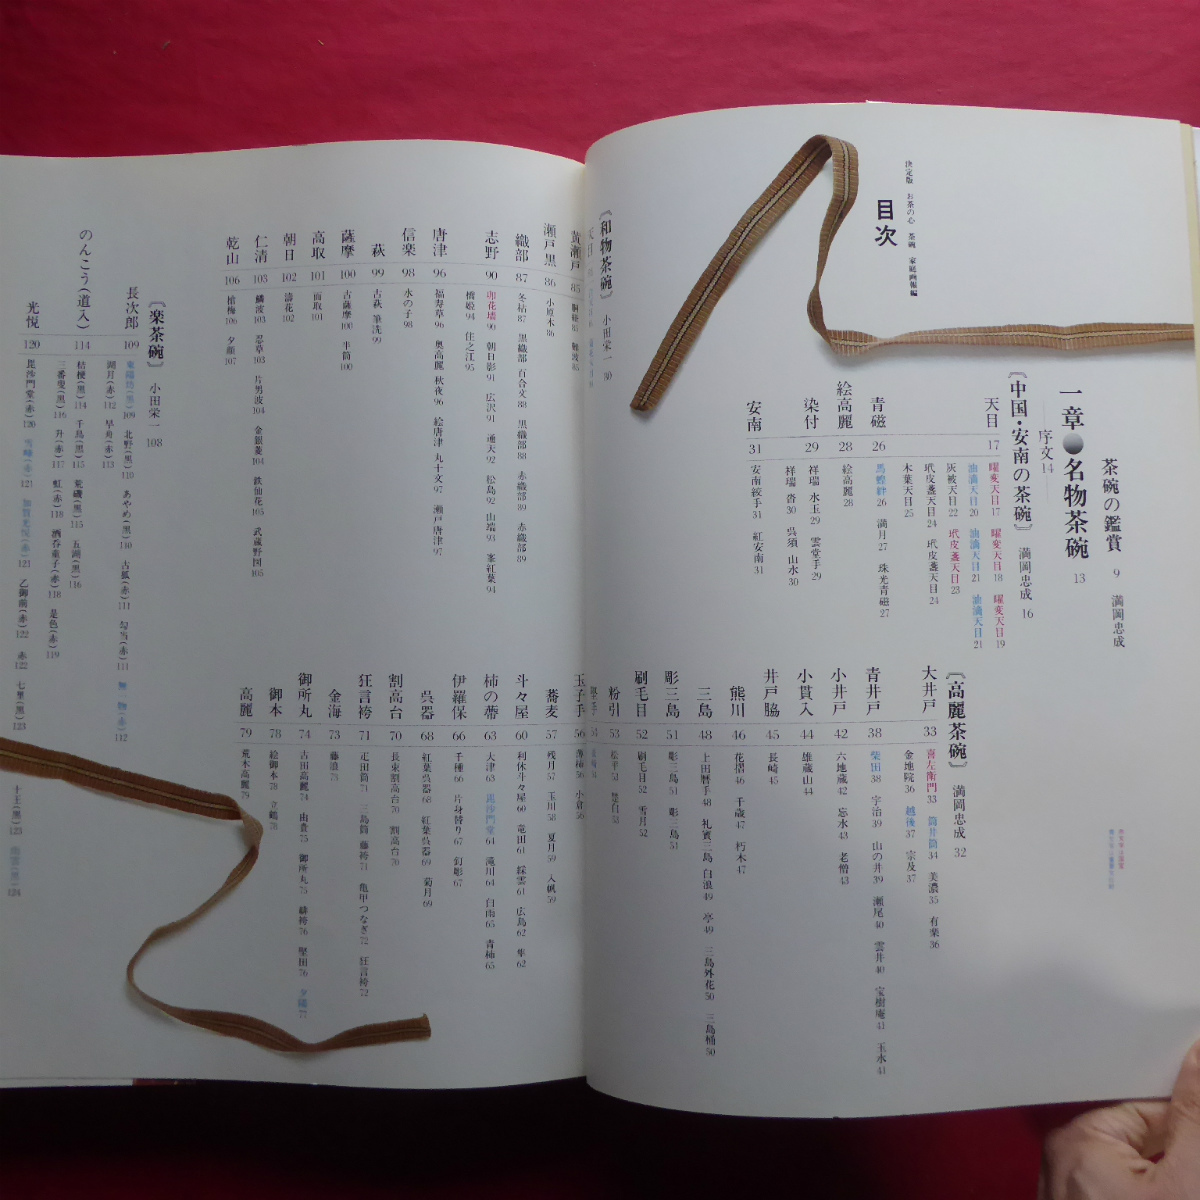 決定版 お茶の心 茶碗 家庭画報編
目次
茶碗の鑑賞 9 満岡忠成
一章●名物茶碗 13
序文 14
〔中国・安南の茶碗〕 満岡忠成 16
天目 17 曜変天目17 曜変天目18 曜変天目19
油滴天目20 油滴天目21 油滴天目21
灰被天目22 玳皮盞天目23
玳皮盞天目24 玳皮盞天目24
木葉天目25
青磁 26 馬蝗絆26 満月27 珠光青磁27
絵高麗 28 絵高麗28
染付 29 祥瑞 水玉29 雲堂手29
祥瑞 沓30 呉須 山水30
安南 31 安南絞手31 紅安南31
〔高麗茶碗〕 満岡忠成 32
大井戸 33 喜左衛門33 筒井筒34 美濃35 有楽36
金地院36 越後37 宗及37
青井戸 38 柴田38 宇治39 山の井39 瀬尾40 雲井40 宝樹庵41 玉水41
小井戸 42 六地蔵42 忘水43 老僧43
小貫入 44 雄蔵山44
井戸脇 45 長崎45
熊川 46 花摺46 千歳47 朽木47
三島 48 上田暦手48 礼賓三島 白浪49 亭49 三島外花50 三島桶50
彫三島 51 彫三島51 彫三島51
刷毛目 52 刷毛目52 雪月52
粉引 53 松平53 楚白53
玉子手 56 薄柿56 小倉56
蕎麦 57 残月57 玉川58 夏月59 入帆59
斗々屋 60 利休斗々屋60 竜田61 綵雲61 広島62 隼62
柿の蔕 63 大津63 毘沙門堂64 滝川64 白雨65 青柿65
伊羅保 66 千種66 片身替り67 釘彫67
呉器 68 紅葉呉器68 紅葉呉器69 菊月69
割高台 70 長束割高台70 割高台70
狂言袴 71 疋田筒71 三島筒 藤袴71 亀甲つなぎ72 狂言袴72
金海 73 藤浪73
御所丸 74 古田高麗74 由貴75 御所丸75 緋袴76 堅田76 夕陽77
御本 78 絵御本78 立鶴78
高麗 79 荒木高麗79
〔和物茶碗〕 小田栄一 80
黄瀬戸 85
瀬戸黒 86 小原木86
織部 87 冬枯87 黒織部 百合文88 黒織部88 赤織部89 赤織部89
志野 90 卯花墻90 朝日影91 広沢91 通天92 松島92 山端93 峯紅葉94
橋姫94 住之江95
唐津 96 福寿草96 奥高麗 秋夜96 絵唐津 丸十文97 瀬戸唐津97
信楽 98 水の子98
萩 99 古萩 筆洗99
薩摩 100 古薩摩100 半筒100
高取 101 面取101
朝日 102 濤花102
仁清 103 鱗波103 忍草103 片男波104 金銀菱104 鉄仙花105 武蔵野図105
乾山 106 槍梅106 夕顔107
〔楽茶碗〕 小田栄一 108
長次郎 109 東陽坊(黒)109 北野(黒)110 あやめ(黒)110 古狐(赤)111 勾当(赤)111 無一物(赤)112
湖月(赤)112 早舟(赤)113
のんこう(道入) 114 桔梗(黒)114 千鳥(黒)115 荒磯(黒)115 五湖(黒)116
三番叟(黒)116 升(赤)117 虹(赤)118 酒呑童子(赤)118 是色(赤)119
光悦 120 毘沙門堂(赤)120 雪峰(赤)121 加賀光悦(赤)121 乙御前(赤)122 赤122 七里(黒)123
十王(黒)123